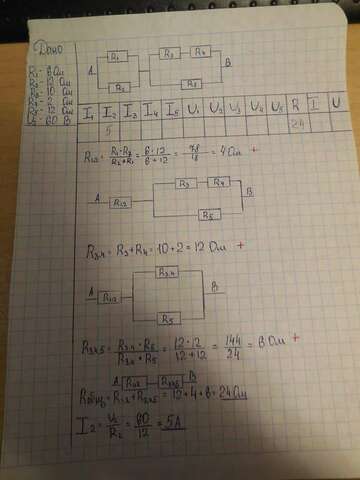 Дано
R₁- 6 Ом
R₂- 12 Ом
R₃- 10 Ом
R₄- 2 Ом
R₅- 12 Ом
U- 60 В
A R₁ R₂ R₃ R₄ R₅ B
I₁ I₂ I₃ I₄ I₅ U₁ U₂ U₃ U₄ U₅ R I U
5 24
R₁₂= R₁·R₂/R₂+R₁ = 6·12/6+12 = 72/18 = 4 Ом +
A R₁₂ R₃ R₄ R₅ B
R₃₄= R₃+R₄=10+2=12 Ом +
A R₁₂ R₃₄ R₅ B
R₃₄₅= R₃₄·R₅/R₃₄+R₅ = 12·12/12+12 = 144/24 = 6 Ом +
A R₁₂ R₃₄₅ B
Rобщ= R₁₂+R₃₄₅= 12+4+8=24Ом
I₂= U/R₂ = 60/12 = 5А